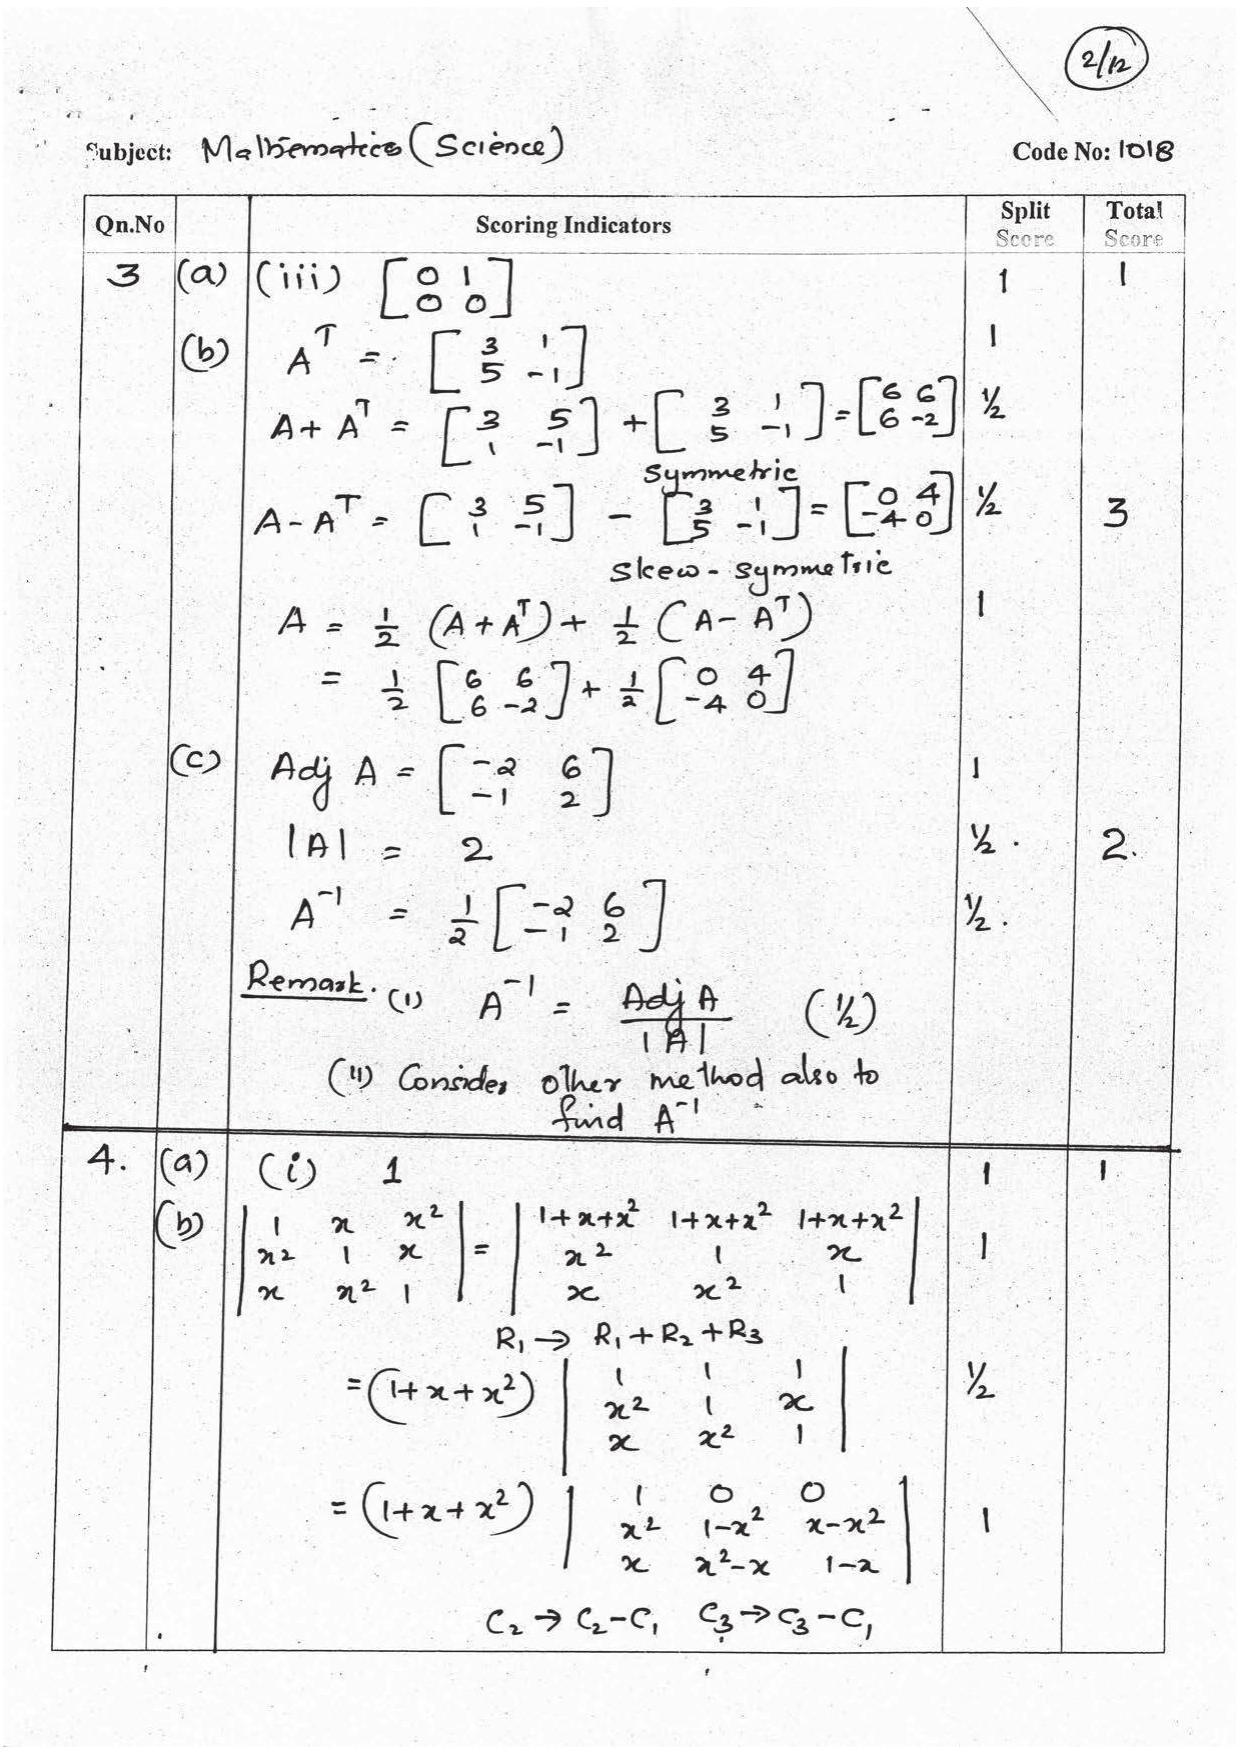 2/12
Subject: Mathematics (Science) Code No: 1018
Qn.No Scoring Indicators Split Score Total Score
3 (a) (iii) [0 1; 0 0] 1 1
(b) A^T = [3 1; 5 -1] 1
A + A^T = [3 5; 1 -1] + [3 1; 5 -1] = [6 6; 6 -2] ½
Symmetric
A - A^T = [3 5; 1 -1] - [3 1; 5 -1] = [0 4; -4 0] ½ 3
Skew - symmetric
A = 1/2 (A + A^T) + 1/2 (A - A^T) 1
= 1/2 [6 6; 6 -2] + 1/2 [0 4; -4 0]
(c) Adj A = [-2 6; -1 2] 1
|A| = 2 ½ . 2.
A^-1 = 1/2 [-2 6; -1 2] ½ .
Remark. (i) A^-1 = Adj A / |A| (½)
(ii) Consider other method also to
find A^-1
4. (a) (i) 1 1 1
(b) |1 x x²; x² 1 x; x x² 1| = |1+x+x² 1+x+x² 1+x+x²; x² 1 x; x x² 1| 1
R₁ → R₁ + R₂ + R₃
= (1+x+x²) |1 1 1; x² 1 x; x x² 1| ½
= (1+x+x²) |1 0 0; x² 1-x² x-x²; x x²-x 1-x| 1
C₂ → C₂-C₁ C₃ → C₃-C₁